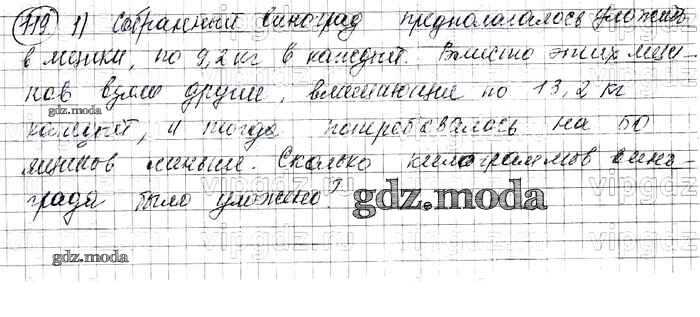 719 1) Собранный виноград предполагалось уложить
в мешки, по 9,2 кг в каждый. Вместо этих меш-
ков взяли другие, вмещающие по 13,2 кг
gdz.moda
каждый, и тогда потребовалось на 50
ящиков меньше. Сколько килограммов вино-
града было уложено?
gdz.moda
gdz.moda
vipgdz
vipgdz.ru